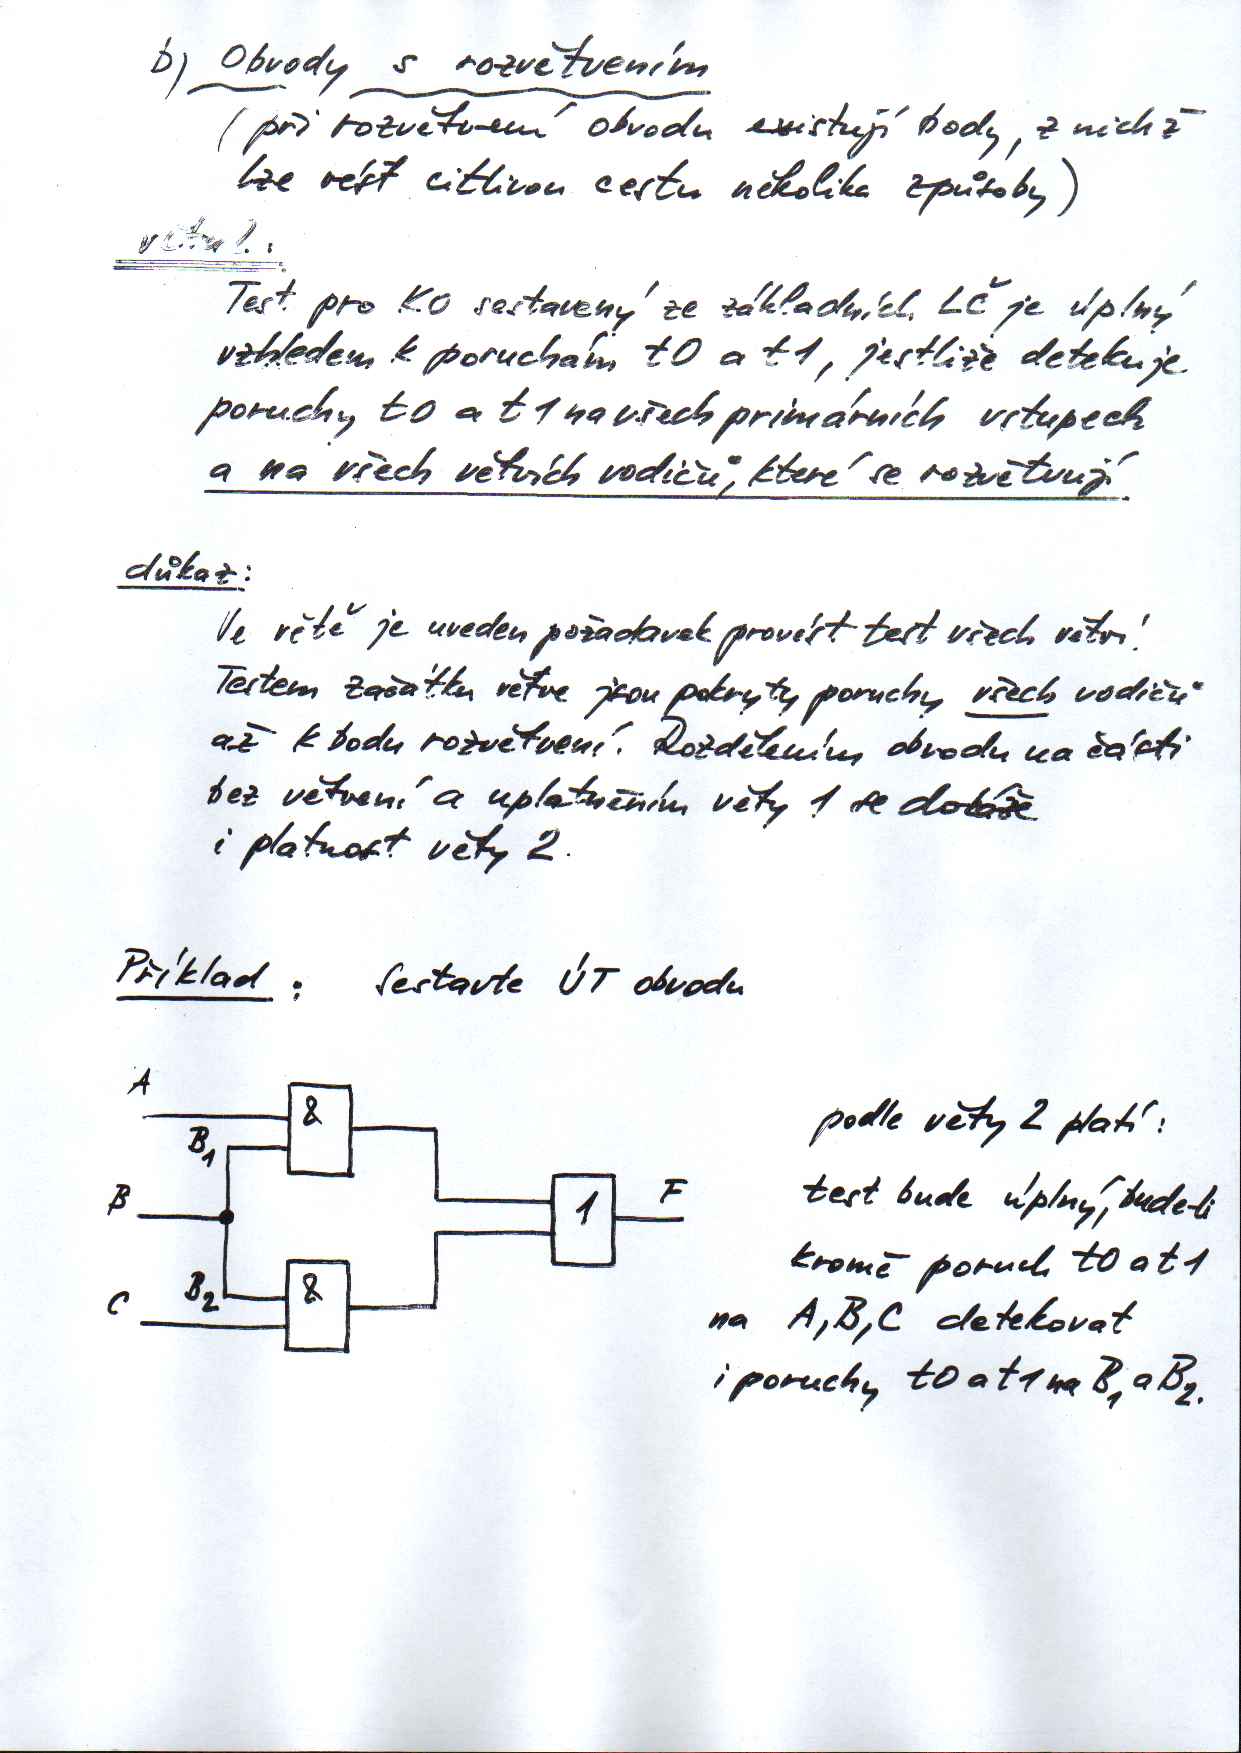 b) Obvody s rozvětvením
(při rozvětvení obvodu existují body, z nichž
lze vést citlivou cestu několika způsoby)
věta 2.:
Test pro KO sestavený ze základních LČ je úplný
vzhledem k poruchám t0 a t1, jestliže detekuje
poruchy t0 a t1 na všech primárních vstupech
a na všech větvích vodičů, které se rozvětvují
důkaz:
Ve větě je uveden požadavek provést test všech větví.
Testem začátku větve jsou pokryty poruchy všech vodičů
až k bodu rozvětvení. Rozdělením obvodu na části
bez větvení a uplatněním věty 1 se dokáže
i platnost věty 2.
Příklad: Sestavte ÚT obvodu
A
&
B1
B
1
F
B2
&
C
podle věty 2 platí:
test bude úplný, bude-li
kromě poruch t0 a t1
na A, B, C detekovat
i poruchy t0 a t1 na B1 a B2.